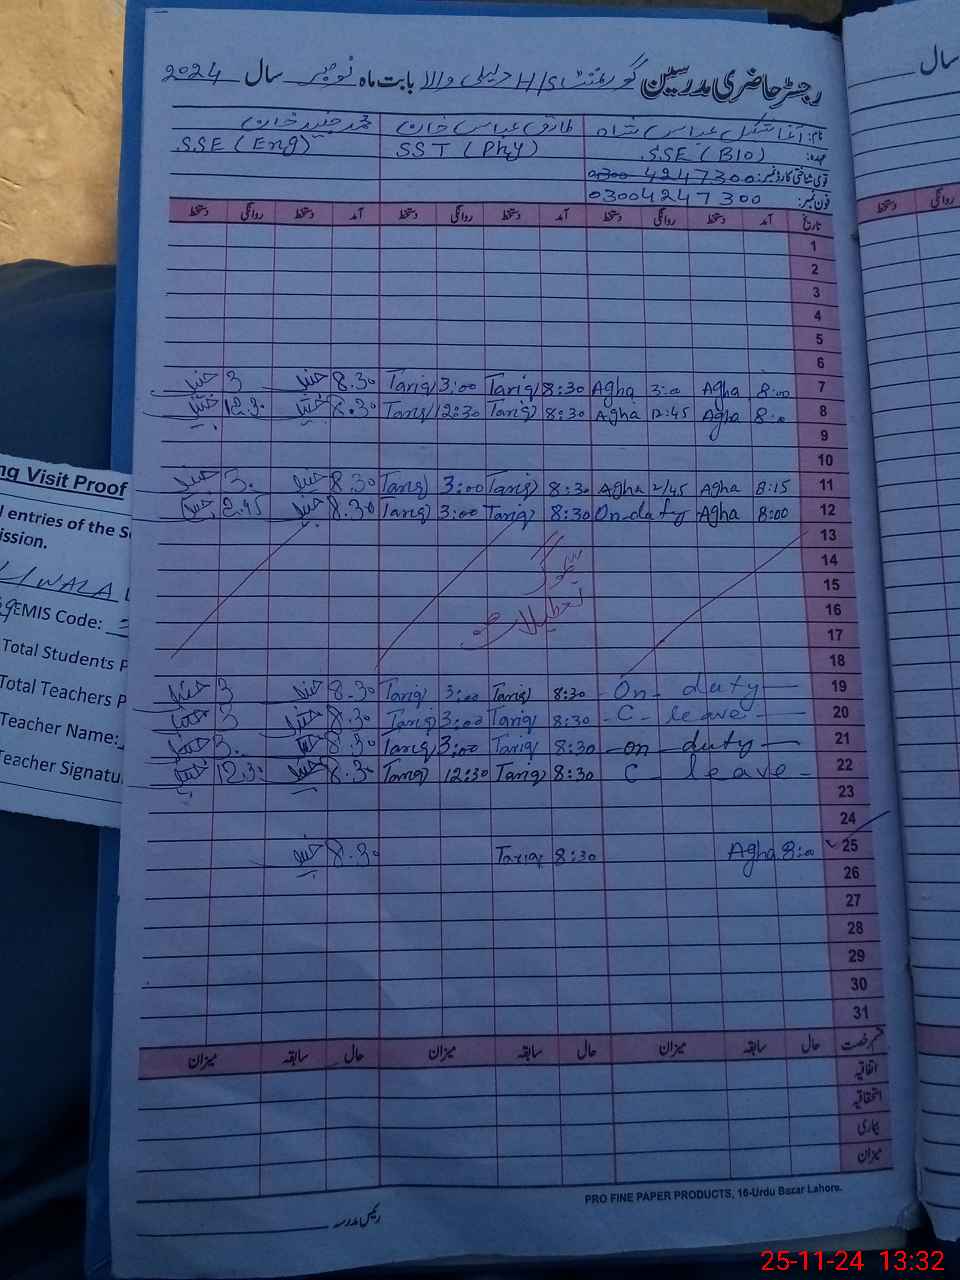 رجسٹر حاضری مدرسین گورنمنٹ H/S والا بابت ماہ نومبر سال 2024
نام: عباس شاہ طارق عباس خان محمد جنید خان
عہدہ: S.SE (BIO) SST (Phy) S.SE (Eng)
قومی شناختی کارڈ نمبر: 0300 4247300
فون نمبر: 03004247300
تاریخ آمد دستخط روانگی دستخط آمد دستخط روانگی دستخط آمد دستخط روانگی دستخط
1
2
3
4
5
6
7 8:00 Agha 3:0 Agha 8:30 Tariq 3:00 Tariq 8.30 جنید 3 جنید
8 8:0 Agha 12:45 Agha 8:30 Tariq 12:30 Tariq 8.30 جنید 12.30 جنید
9
10
11 8:15 Agha 2/45 Agha 8:30 Tariq 3:00 Tariq 8.30 جنید 3. جنید
12 8:00 Agha On-duty 8:30 Tariq 3:00 Tariq 8.30 جنید 2.45 جنید
13
14
15
16
تعطیلات
17
18
19 On duty 8:30 Tariq 3:00 Tariq 8.30 جنید 3 جنید
20 C - leave 8:30 Tariq 3:00 Tariq 8.30 جنید 3 جنید
21 on duty 8:30 Tariq 3:00 Tariq 8.30 جنید 3. جنید
22 C - leave 8:30 Tariq 12:30 Tariq 8.30 جنید 12.30 جنید
23
24
25 8:0 Agha 8:30 Tariq 8.30 جنید
26
27
28
29
30
31
قسم رخصت حال سابقہ میزان حال سابقہ میزان حال سابقہ میزان
اتفاقیہ
استحقاقیہ
بیماری
میزان
PRO FINE PAPER PRODUCTS, 16-Urdu Bazar Lahore.
رئیس مدرسہ
سال
روانگی دستخط
ng Visit Proof
l entries of the S
ission.
WALA
EMIS Code:
Total Students P
Total Teachers P
Teacher Name:
Teacher Signatu
25-11-24 13:32